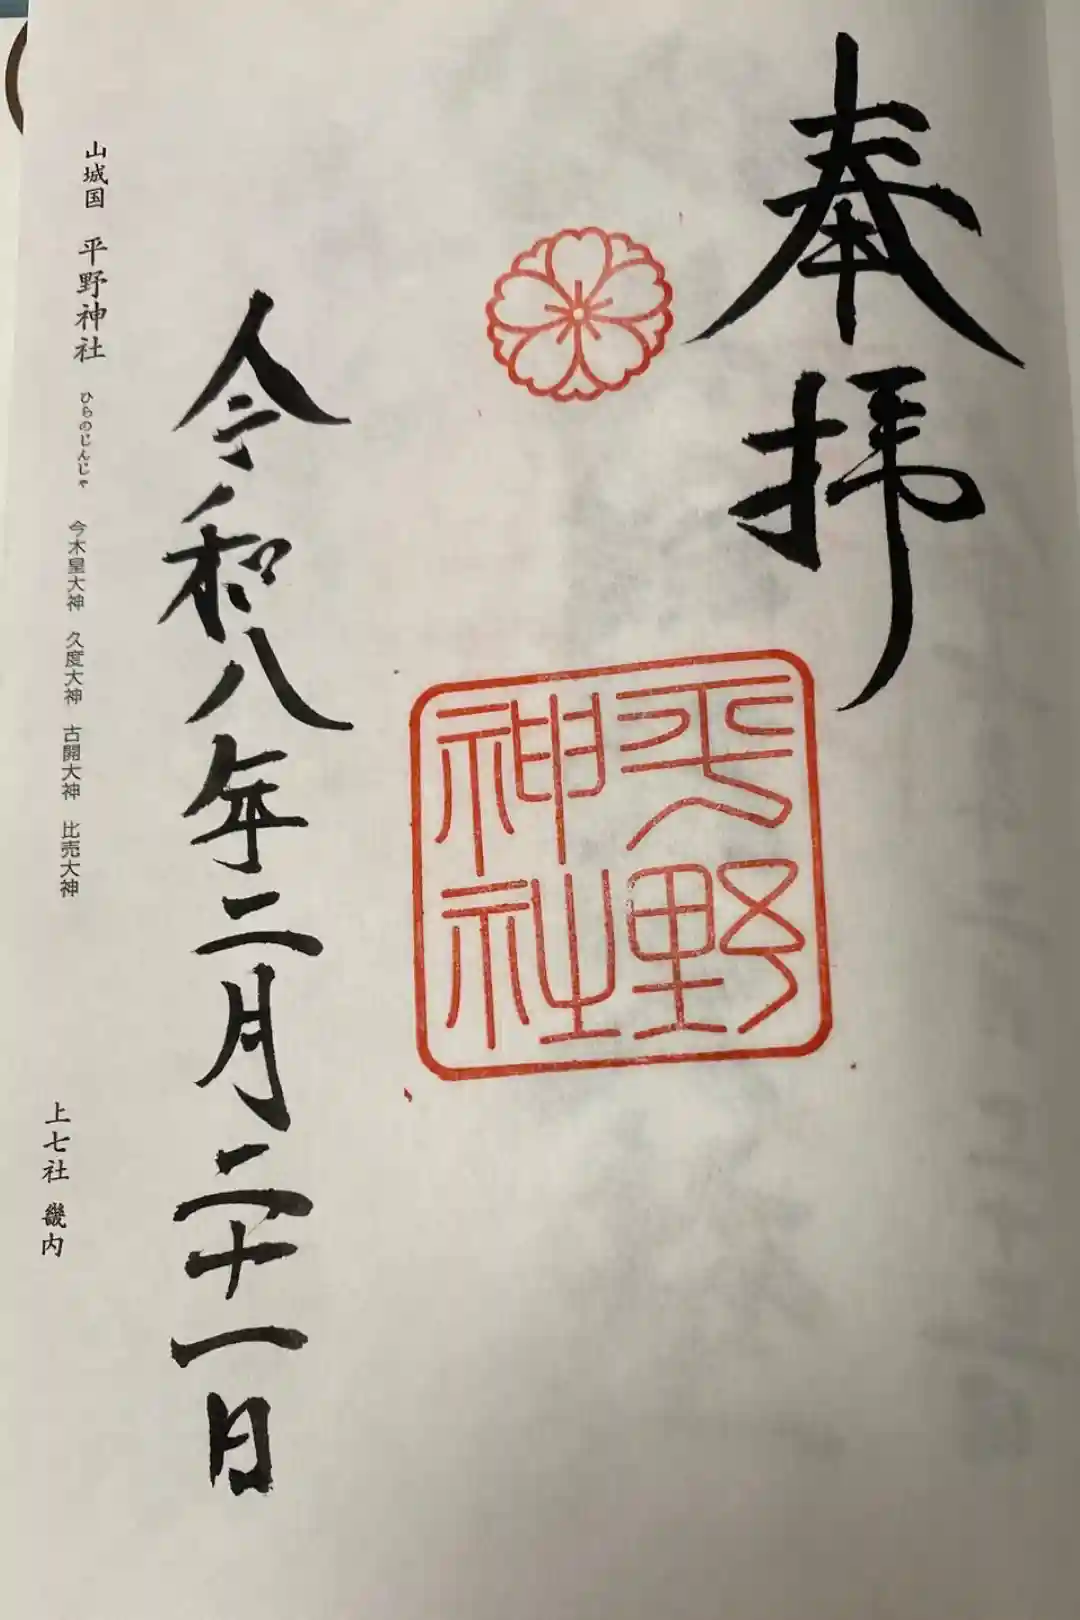 奉拝
平野
神社
令和八年二月二十一日
山城国 平野神社 ひらのじんじゃ 今木皇大神 久度大神 古開大神 比売大神
上七社 畿内